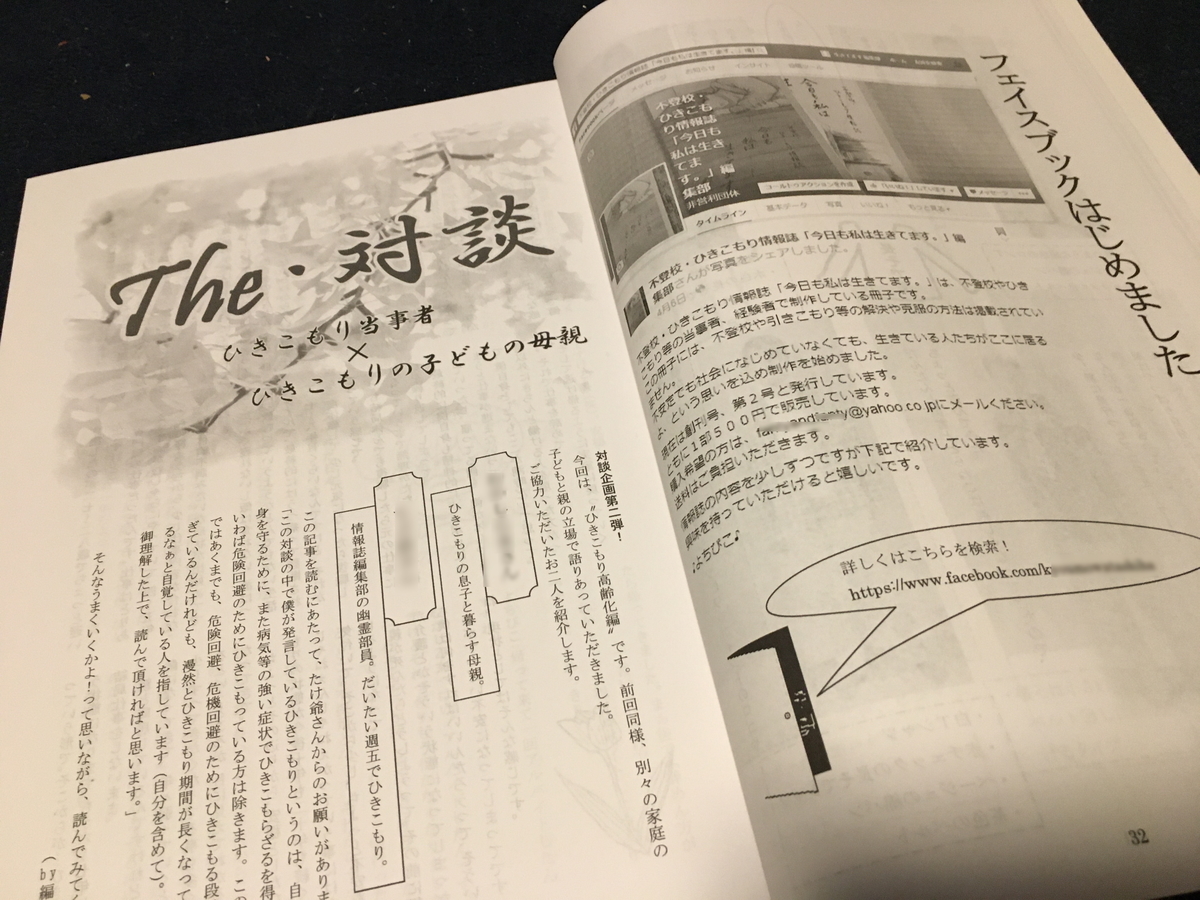 フェイスブックはじめました
不登校・
ひきこも
り情報誌
「今日も
私は生き
てま
す。」編
集部
非営利団体
タイムライン
基本データ
写真
いいね!
もっと見る
不登校・ひきこもり情報誌「今日も私は生きてます。」編
集部さんが写真をシェアしました。
4月6日
不登校・ひきこもり情報誌「今日も私は生きてます。」は、不登校やひき
こもり等の当事者、経験者で制作している冊子です。
この冊子には、不登校や引きこもり等の解決や克服の方法は掲載されてい
ません。
不安定でも社会になじめていなくても、生きている人たちがここに居る
よ、という思いを込め制作を始めました。
現在は創刊号、第2号と発行しています。
ともに1部500円で販売しています。
購入希望の方は、@yahoo.co.jpにメールください。
送料はご負担いただきます。
情報誌の内容を少しずつですが下記で紹介しています。
興味を持っていただけると嬉しいです。
よちぴこ♪
詳しくはこちらを検索!
https://www.facebook.com/k
32
The・対談
ひきこもり当事者
×
ひきこもりの子どもの母親
対談企画第二弾!
今回は、〝ひきこもり高齢化編〟です。前回同様、別々の家庭の
子どもと親の立場で語りあっていただきました。
ご協力いただいたお二人を紹介します。
ひきこもりの息子と暮らす母親。
情報誌編集部の幽霊部員。だいたい週五でひきこもり。
この記事を読むにあたって、たけ爺さんからのお願いがありま
「この対談の中で僕が発言しているひきこもりというのは、自
身を守るために、また病気等の強い症状でひきこもらざるを得
いわば危険回避のためにひきこもっている方は除きます。この
ではあくまでも、危険回避、危機回避のためにひきこもる段
ぎているんだけれども、漫然とひきこもり期間が長くなって
るなぁと自覚している人を指しています(自分を含めて)。
御理解した上で、読んで頂ければと思います。」
そんなうまくいくかよ!って思いながら、読んでみてく
(by編